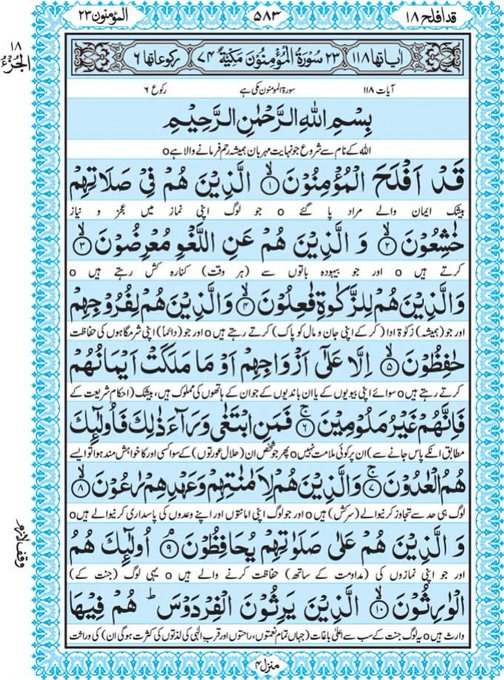 قد افلح ۱۸
۵۸۳
المؤمنون ۲۳
۱۸
الجزء
اٰیاتھا ۱۱۸ ۲۳ سُوْرَۃُ الْمُؤْمِنُوْنَ مَکِّیَّۃٌ ۷۴ رکوعاتھا ۶
آیات ۱۱۸ سورۃ المومنون مکی ہے رکوع ۶
بِسْمِ اللّٰهِ الرَّحْمٰنِ الرَّحِیْمِ
اللہ کے نام سے شروع جو نہایت مہربان ہمیشہ رحم فرمانے والا ہے o
قَدْ اَفْلَحَ الْمُؤْمِنُوْنَ ۙ﴿۱﴾ الَّذِیْنَ هُمْ فِیْ صَلَاتِهِمْ
بیشک ایمان والے مراد پا گئے o جو لوگ اپنی نماز میں عجز و نیاز
خٰشِعُوْنَ ۙ﴿۲﴾ وَ الَّذِیْنَ هُمْ عَنِ اللَّغْوِ مُعْرِضُوْنَ ۙ﴿۳﴾
کرتے ہیں o اور جو بیہودہ باتوں سے (ہر وقت) کنارہ کش رہتے ہیں o
وَالَّذِیْنَ هُمْ لِلزَّكٰوةِ فٰعِلُوْنَ ۙ﴿۴﴾ وَالَّذِیْنَ هُمْ لِفُرُوْجِهِمْ
اور جو (ہمیشہ) زکوٰۃ ادا (کر کے اپنی جان و مال کو پاک) کرتے رہتے ہیں o اور جو (دائماً) اپنی شرم گاہوں کی حفاظت
حٰفِظُوْنَ ۙ﴿۵﴾ اِلَّا عَلٰۤی اَزْوَاجِهِمْ اَوْ مَا مَلَكَتْ اَیْمَانُهُمْ
کرتے رہتے ہیں o سوائے اپنی بیویوں کے یا ان باندیوں کے جو ان کے ہاتھوں کی مملوک ہیں، بیشک (احکامِ شریعت کے
فَاِنَّهُمْ غَیْرُ مَلُوْمِیْنَ ۚ﴿۶﴾ فَمَنِ ابْتَغٰی وَرَآءَ ذٰلِكَ فَاُولٰٓىِٕكَ
مطابق انکے پاس جانے سے) ان پر کوئی ملامت نہیں o پھر جو شخص ان (حلال عورتوں) کے سوا کسی اور کا خواہش مند ہوا تو ایسے
هُمُ الْعٰدُوْنَ ۚ﴿۷﴾ وَالَّذِیْنَ هُمْ لِاَمٰنٰتِهِمْ وَعَهْدِهِمْ رٰعُوْنَ ۙ﴿۸﴾
لوگ ہی حد سے تجاوز کرنیوالے (سرکش) ہیں o اور جو لوگ اپنی امانتوں اور اپنے وعدوں کی پاسداری کرنیوالے ہیں o
وَ الَّذِیْنَ هُمْ عَلٰی صَلَوٰتِهِمْ یُحَافِظُوْنَ ۘ﴿۹﴾ اُولٰٓىِٕكَ هُمُ
اور جو اپنی نمازوں کی (مداومت کے ساتھ) حفاظت کرنے والے ہیں o یہی لوگ (جنت کے)
وقف لازم
الْوٰرِثُوْنَ ۙ﴿۱۰﴾ الَّذِیْنَ یَرِثُوْنَ الْفِرْدَوْسَ ؕ هُمْ فِیْهَا
وارث ہیں o یہ لوگ جنت کے سب سے اعلیٰ باغات (جہاں تمام نعمتوں، راحتوں اور قربِ الٰہی کی لذتوں کی کثرت ہوگی ان) کی وراثت
منزل ۴